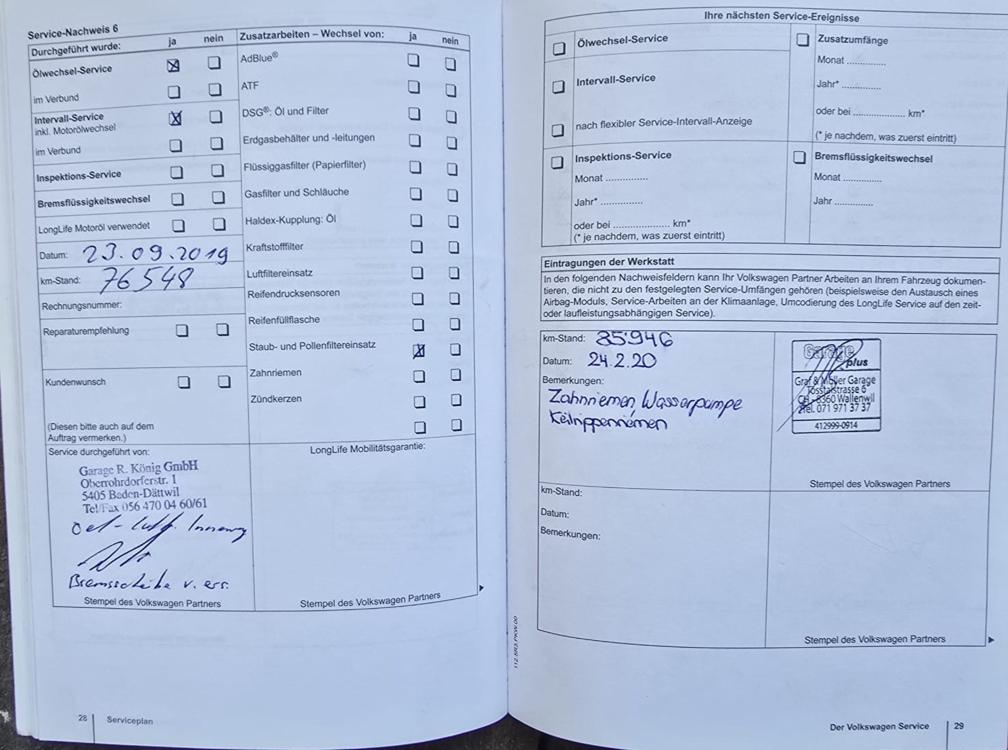 Service-Nachweis 6
Durchgeführt wurde: ja nein
Ölwechsel-Service
im Verbund
Intervall-Service
inkl. Motorölwechsel
im Verbund
Inspektions-Service
Bremsflüssigkeitswechsel
LongLife Motoröl verwendet
Datum: 23.09.2019
km-Stand: 76548
Rechnungsnummer:
Reparaturempfehlung
Kundenwunsch
(Diesen bitte auch auf dem
Auftrag vermerken.)
Zusatzarbeiten – Wechsel von: ja nein
AdBlue®
ATF
DSG®: Öl und Filter
Erdgasbehälter und -leitungen
Flüssiggasfilter (Papierfilter)
Gasfilter und Schläuche
Haldex-Kupplung: Öl
Kraftstofffilter
Luftfiltereinsatz
Reifendrucksensoren
Reifenfüllflasche
Staub- und Pollenfiltereinsatz
Zahnriemen
Zündkerzen
Service durchgeführt von:
Garage R. König GmbH
Oberrohrdorferstr. 1
5405 Baden-Dättwil
Tel/Fax 056 470 04 60/61
Bremsscheibe v. ers.
Stempel des Volkswagen Partners
LongLife Mobilitätsgarantie:
Stempel des Volkswagen Partners
28 Serviceplan
112.5R3.PKW.00
Ihre nächsten Service-Ereignisse
Ölwechsel-Service
Intervall-Service
nach flexibler Service-Intervall-Anzeige
Inspektions-Service
Monat ..............
Jahr* ..............
oder bei .................... km*
(* je nachdem, was zuerst eintritt)
Zusatzumfänge
Monat .............
Jahr* .............
oder bei .................... km*
(* je nachdem, was zuerst eintritt)
Bremsflüssigkeitswechsel
Monat .............
Jahr .............
Eintragungen der Werkstatt
In den folgenden Nachweisfeldern kann Ihr Volkswagen Partner Arbeiten an Ihrem Fahrzeug dokumen-
tieren, die nicht zu den festgelegten Service-Umfängen gehören (beispielsweise den Austausch eines
Airbag-Moduls, Service-Arbeiten an der Klimaanlage, Umcodierung des LongLife Service auf den zeit-
oder laufleistungsabhängigen Service).
km-Stand: 85'946
Datum: 24.2.20
Bemerkungen:
Zahnriemen, Wasserpumpe
Keilrippenriemen
Garage
plus
Graf & Möller Garage
Tösstalstrasse 6
CH-8360 Wallenwil
Tel. 071 971 37 37
412999-0914
Stempel des Volkswagen Partners
km-Stand:
Datum:
Bemerkungen:
Stempel des Volkswagen Partners
Der Volkswagen Service 29